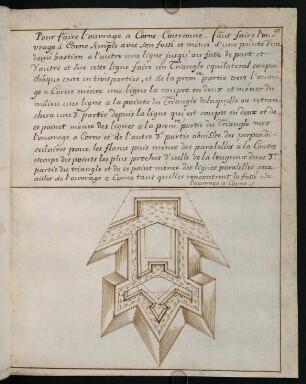 Pour faire l'ouvrage a Corne Couronné, faut faire l'ou-
vrage a Corne simple avec son fossé et mener d'une pointe d'un
demi bastion a l'autre une ligne jusqu'au fossé de part et
d'autre et sur cette ligne faire un Triangle equilateral couper
chaque costé en trois parties, et de la prem. partie vers l'ouvra-
ge a Corne mener une ligne la couper en deux et mener du
milieu une ligne a la pointe du Triangle de laquelle on retran-
chera une partie depuis la ligne qui est coupée en deux et de
ce point mener des lignes a la prem. partie du Triangle vers
l'ouvrage a Corne et de l'autre partie abaisser des perpendi-
culaires pour les flancs puis mener des paralelles a la Contre
escarpe des points les plus proches d'icelle de la longueur d'une
partie du triangle et de ce point mener des lignes paralelles aux
ailes de l'ouvrage a Corne tant quelles rencontrent le fossé de
l'ouvrage a Corne.